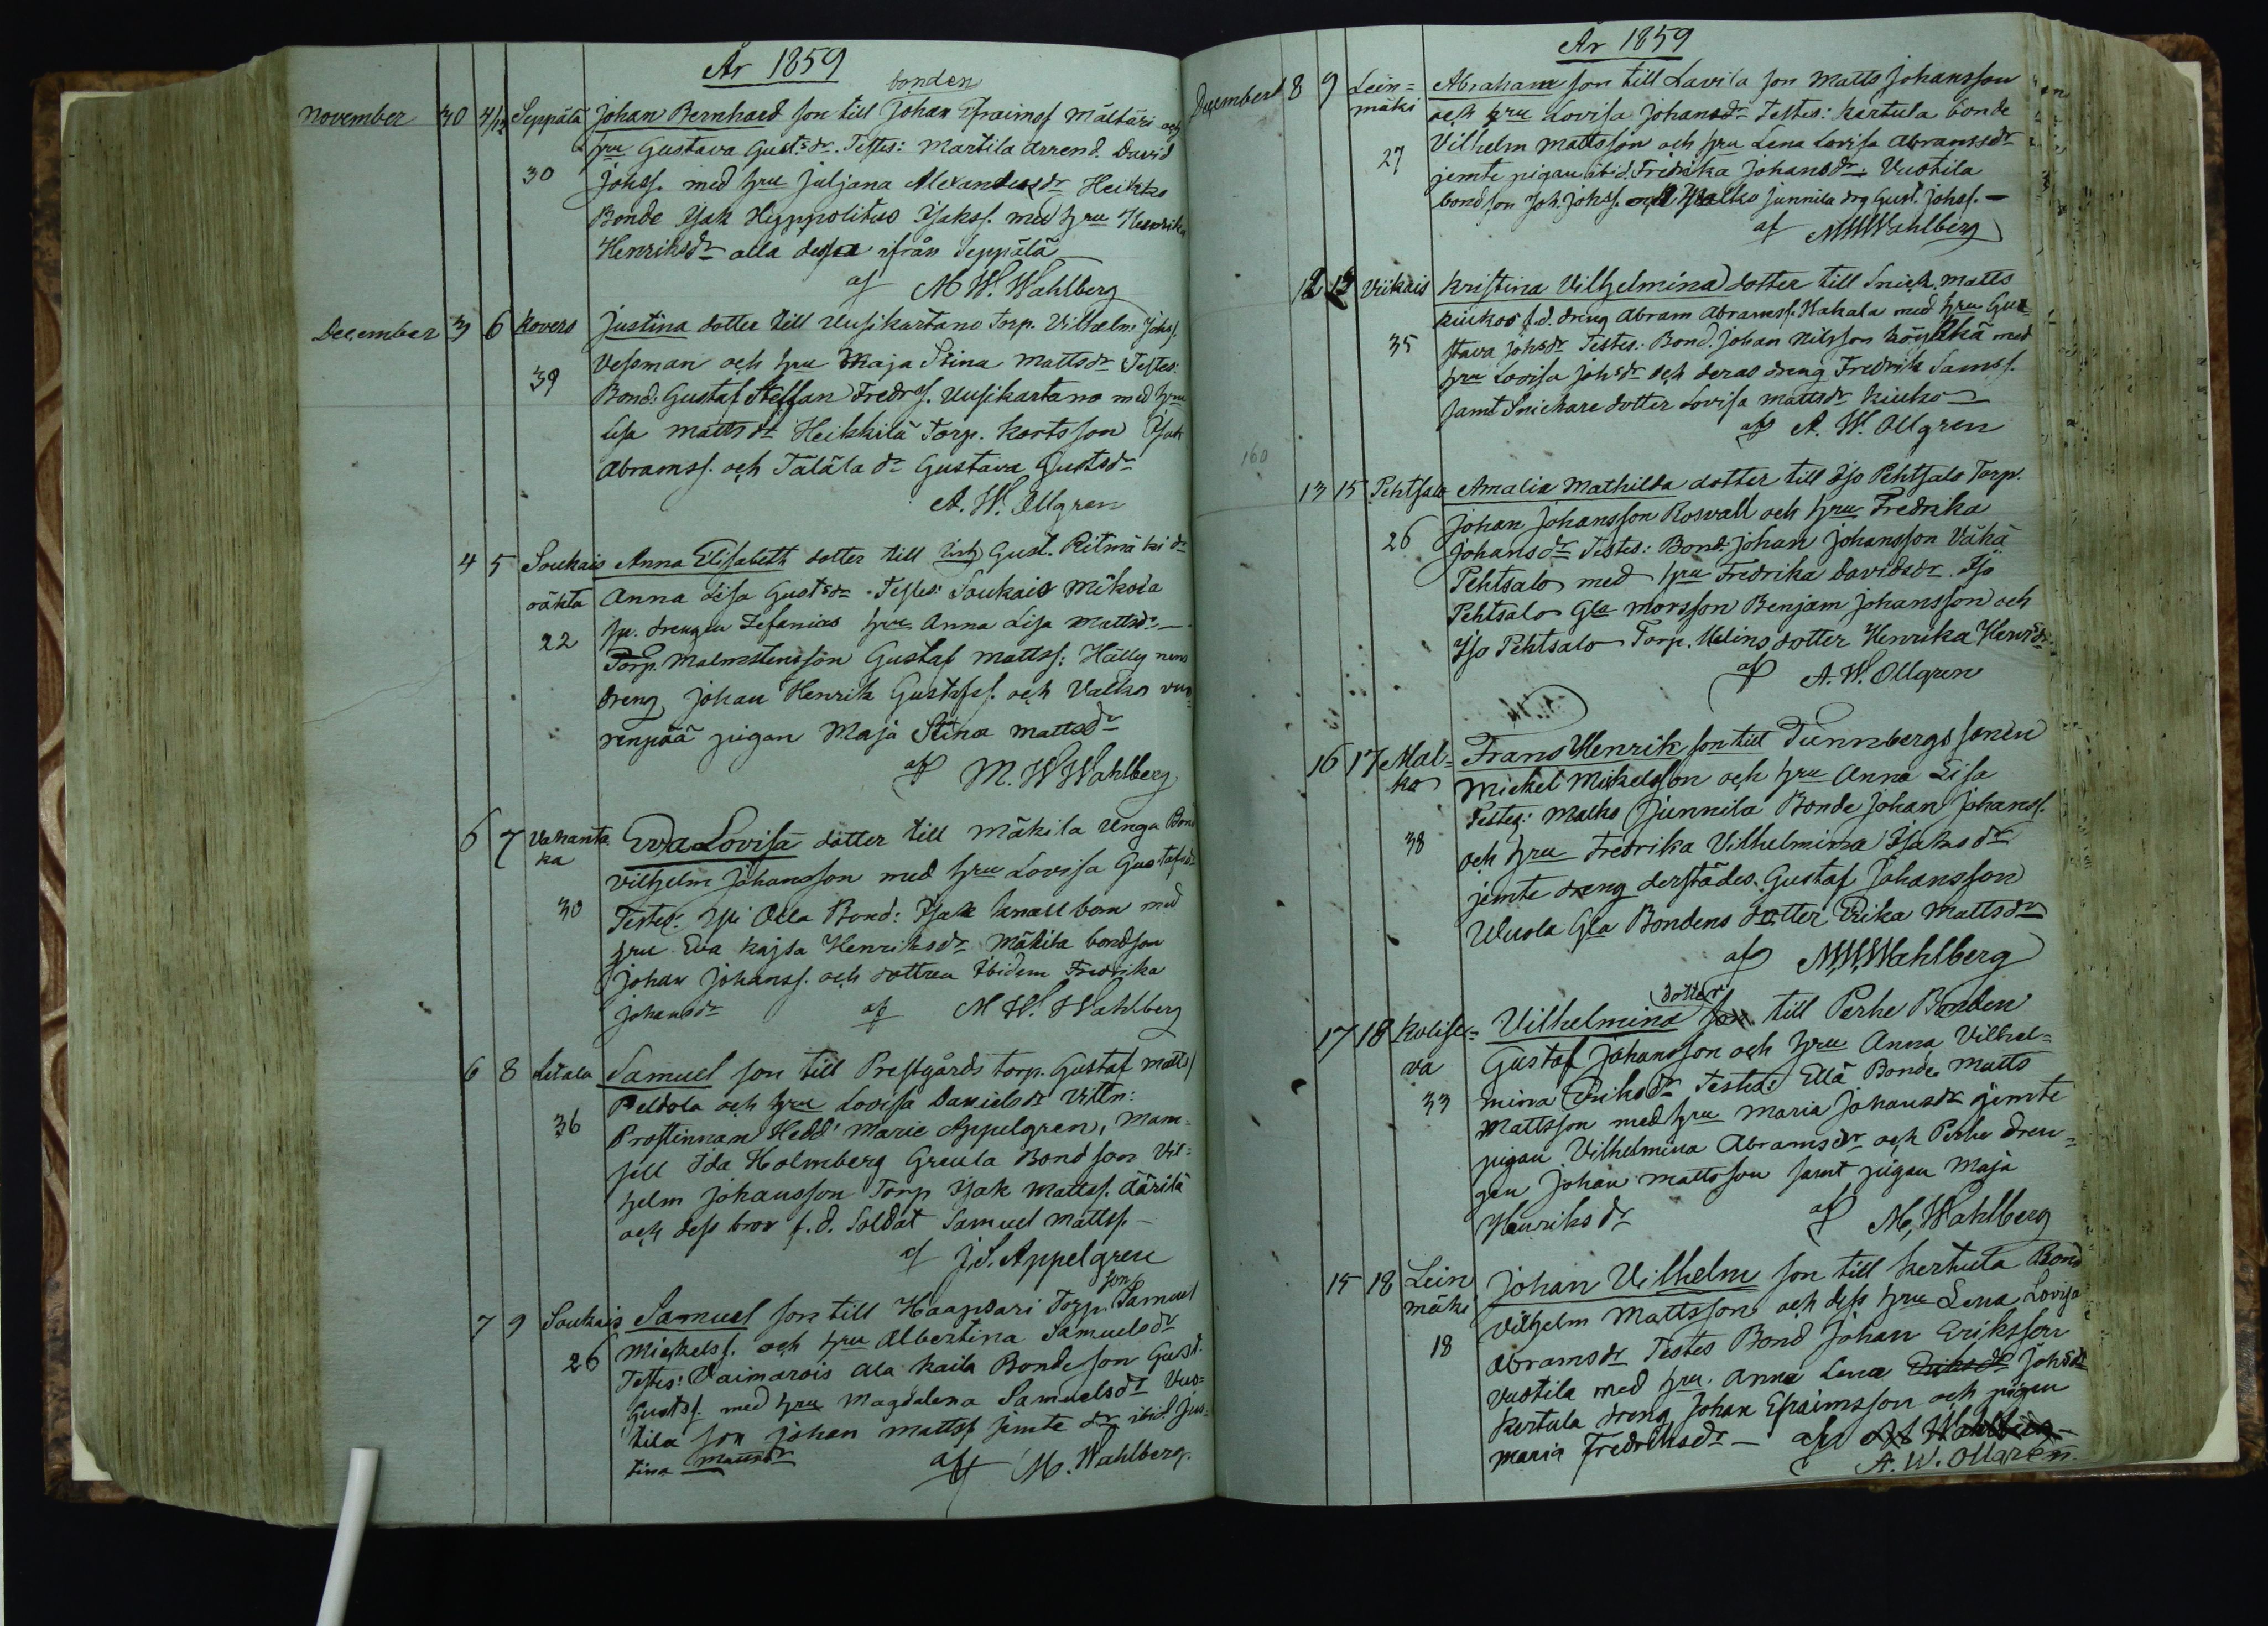 År 1859
bonden
November 30 4/12 Seppälä Johan Bernhard son till Johan Efraimss Mältäri och
hru Gustava Gust:sdr. Testes: Martila Arrend. David
30 Johss. med hru Juljana Alexandersdr Heikko
Bonde Isak Hyppolitus Isakss. med hru Henrika
Henriksdr alla dessa ifrån Seppälä
af M W. Wahlberg
December 3 6 Kovero Justina dotter till Uusikartano Torp. Vilhelm Johss.
Vessman och hru Maja Stina Mattsdr Testes:
39 Bond: Gustaf Steffan Fredrss. Uusikartano med hru
Lisa Mattsdr Heikkilä Torp. Korts son Isak
Abramss. och Tälälä dr Gustava Gustsdr
A. W. Ollgren
4 5 Soukais Anna Elisabeth dotter till Gust. Ritmäki dr
oäkta Anna Lisa Gustsdr. Testes: Soukais Mikola
22 sp. drengen Zefanias hru Anna Lisa Mattsdr —
Torp. Malmstens son Gustaf Mattss: Hälly nens
dreng Johan Henrik Gustafss. och Valko vuo
renpää pigan Maja Stina Mattsdr
af M. W Wahlberg
6 7 Vahanta Eva Lovisa dotter till Mäkila Unga Bond
ka Vilhelm Johansson med hru Lovisa Gustafsdr
30 Testes: Yli Olla Bond: Isak Knallbom med
hru Eva Kajsa Henriksdr Mäkila bondson
Johan Johanss. och dottren Ibidem Fredrika
Johansdr af M W. Wahlberg
6 8 Letala Samuel son till Prestgårds torp. Gustaf Matts
Peldola och hru Lovisa Danielsdr Vittn:
36 Prostinnan Hedd' Marie Appelgren, Mam=
sell Ida Holmberg Greula Bondson Vil=
helm Johansson Torp Isak Mattss. Äärilä
och dess bror f.d. Soldat Samuel Mattss. —
af J. S. Appelgren
son
7 9 Soukais Samuel son till Haapsari Torp. Samuel
Mickelss. och hru Albertina Samuelsdr
26 Testes: Vaimarois Ala Kaila Bondeson Gust.
Gustss. med hru Magdalena Samuelsdr Vuo=
tila son Johan Mattss jemte dr ibid Jus=
tina Mattsdr af M. Wahlberg.
År 1859
December 8 9 Lein= Abraham son till Lavila son Matts Johansson
mäki och hru Lovisa Johansdr Testes: Kertula bonde
27 Vilhelm Mattsson och hru Lena Lovisa Abramssdr
jemte pigan ibid. Fredrika Johansdr. Vuotila
bondson Joh. Johss. och Junnila drg Gust. Johss. —
af M W Wahlberg
12 13 Viikais Kristina Vilhelmina dotter till Snick. Matts
Kiukos f.d. dreng Abram Abramss. Hakala med hru Gus
35 stava Johsdr Testes: Bond. Johan Nilsson Köylikä med
hru Lovisa Johsdr och deras dreng Fredrik Samss.
samt Snickare dotter Lovisa Mattsdr Kiuko
af A. W. Ollgren
160
13 15 Pehtsalo Amalia Mathilda dotter till Iso Pehtsalo Torp.
Johan Johansson Rosvall och hru Fredrika
26 Johansdr Testes: Bond. Johan Johansson Vähä
Pehtsalo med hru Fredrika Davidsdr. Iso
Pehtsalo Gla morsson Benjam Johansson och
Iso Pehtsalo Torp. Malins dotter Henrika Henrsdr
af A. W. Ollgren
16 17 Mal= Frans Henrik son till Tunnbergs sonen
ko Mickel Mickelsson och hru Anna Lisa
Testes: Malko Junnila Bonde Johan Johanss.
38 och hru Fredrika Vilhelmina Isaksdr
jemte dreng derstädes Gustaf Johansson
Uuola Gla Bondens dotter Erika Mattsdr
af M W Wahlberg
dotter
17 18 Kolise= Vilhelmina son till Perhe Bonden
va Gustaf Johansson och hru Anna Vilhel=
33 mina Eriksdr Testes: Ellä Bonde Matts
Mattsson med hru Maria Johansdr jemte
pigan Vilhelmina Abramsdr och Perhe dren=
gen Johan Mattsson samt pigan Maja
Henriksdr af M, Wahlberg
15 18 Lein Johan Vilhelm son till Kertula Bond
mäki Vilhelm Mattsson och dess hru Lena Lovisa
18 Abramsdr Testes Bond Johan Eriksson
Vuotila med hru. Anna Lena Eriksdr Johsdr
Kertula dreng Johan Efraimsson och pigan
Maria Fredriksdr — af M Wahlberg
A. W. Ollgren.